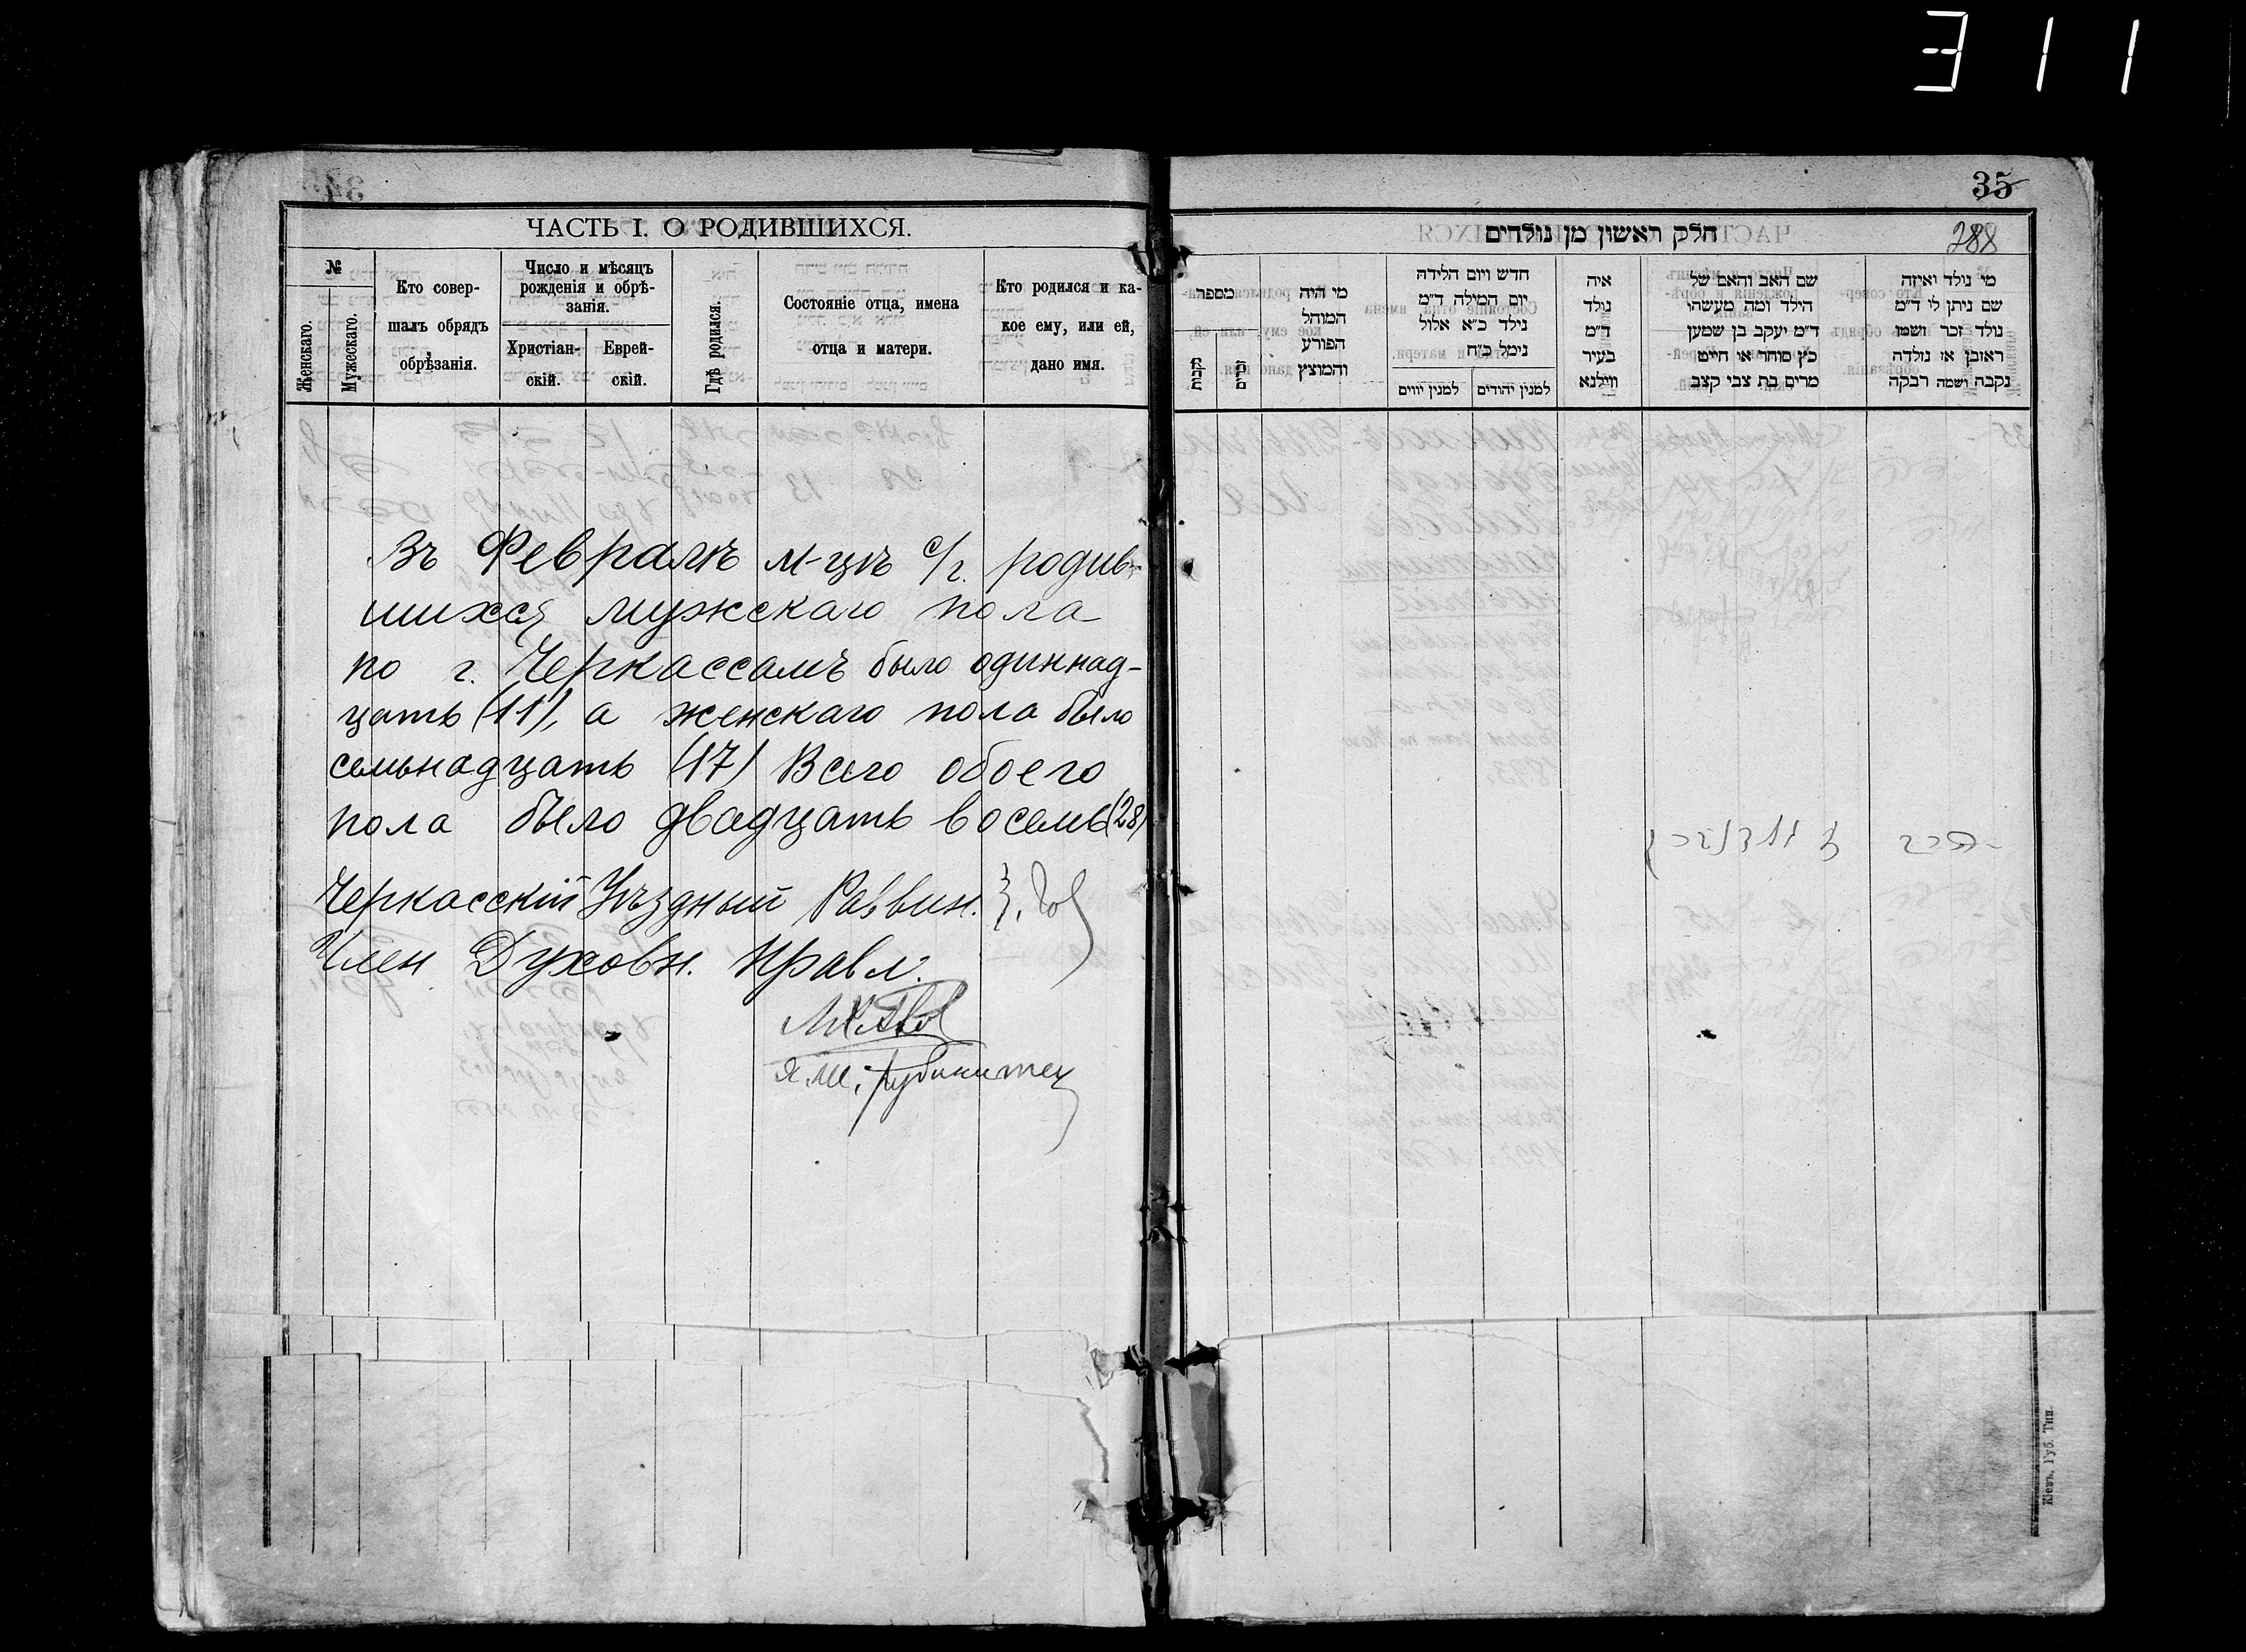 311
ЧАСТЬ I. О РОДИВШИХСЯ.
№
Женскаго.
Мужескаго.
Кто совер-
шалъ обрядъ
обрѣзанія.
Число и мѣсяцъ
рожденія и обрѣ-
занія.
Христіан-
скій.
Еврей-
скій.
Гдѣ родился.
Состояніе отца, имена
отца и матери.
Кто родился и ка-
кое ему, или ей,
дано имя.
Въ Февралѣ м-цѣ с/г. родив-
шихся мужскаго пола
по г. Черкассамъ было одиннад-
цать (11), а женскаго пола было
семьнадцать (17) Всего обоего
пола было двадцать восемь (28)
Черкасскій Уѣздный Раввин.
Член Духовн. Правл.
35
288
חלק ראשון מן נולדים
מי נולד ואיזה
שם ניתן לו ד״מ
נולד זכר ושמו
ראובן או נולדה
נקבה ושמה רבקה
שם האב והאם של
הילד ומה מעשהו
ד״מ יעקב בן שמעון
כץ סוחר או חייט
מרים בת צבי קצב
איה
נולד
ד״מ
בעיר
ווילנא
חדש ויום הלידה
יום המילה ד״מ
נולד כ״א אלול
נימל כ״ח
למנין יהודים
למנין יווים
מי היה
המוהל
הפורע
והמוצץ
מספר
זכרים
נקבות
Кіевъ, Губ. Тип.